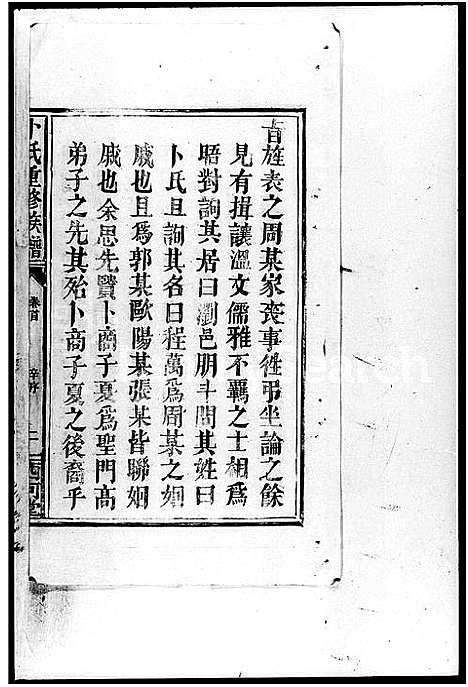 旨旌表之周某家喪事徃弔坐論之餘
見有揖讓溫文儒雅不羈之士相爲
晤對詢其居曰瀏邑朋斗問其姓曰
卜氏且詢其名曰程萬爲周某之姻
戚也且爲郭某歐陽某張某皆聯姻
戚也余思先賢卜商子夏爲聖門高
弟子之先其殆卜商子夏之後裔乎
卜氏重修族譜
卷首
西河堂